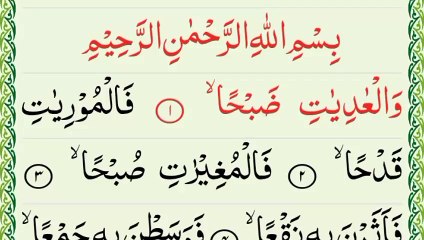 بِسْمِ اللهِ الرَّحْمٰنِ الرَّحِيْمِ
وَالْعٰدِيٰتِ ضَبْحًا ۙ ۱ فَالْمُوْرِيٰتِ
قَدْحًا ۙ ۲ فَالْمُغِيْرٰتِ صُبْحًا ۙ ۳
فَاَثَرْنَ بِهٖ نَقْعًا ۙ ۴ فَوَسَطْنَ بِهٖ جَمْعًا ۙ